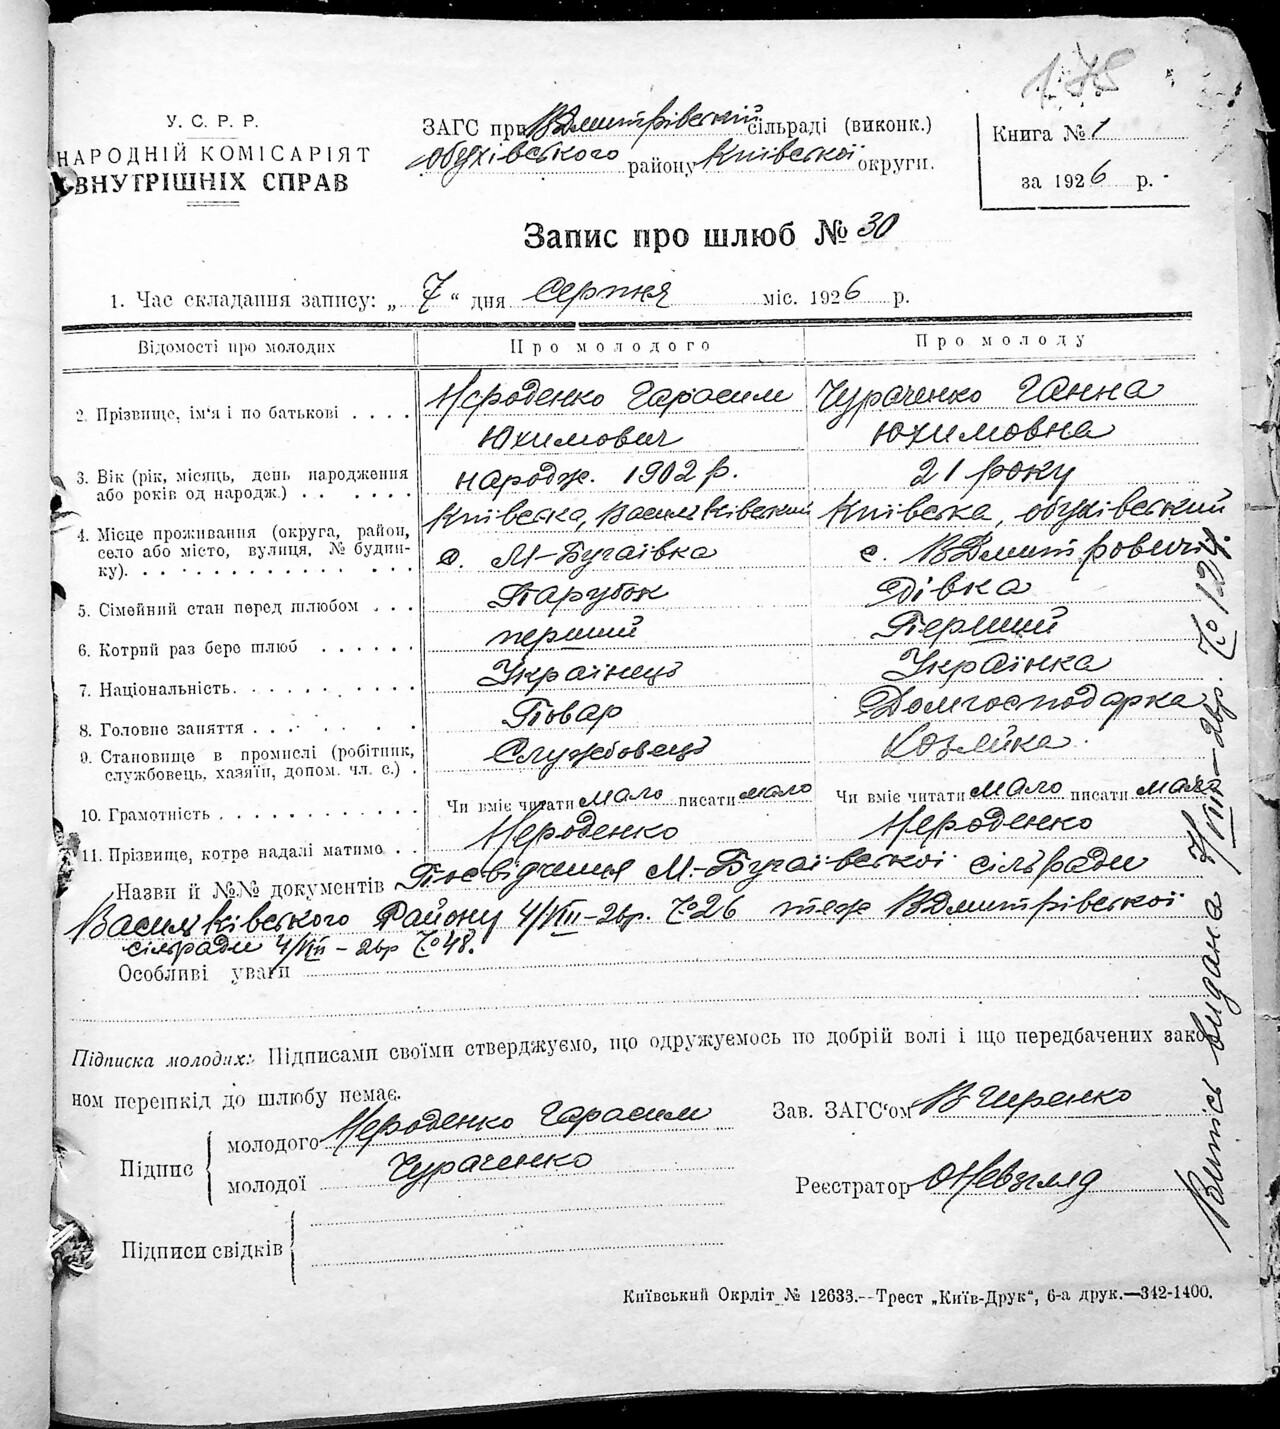 175
У. С. Р. Р.
НАРОДНІЙ КОМІСАРІЯТ
ВНУТРІШНІХ СПРАВ
ЗАГС при ВДмитрівській сільраді (виконк.)
Обухівського району Київської округи.
Книга № 1
за 1926 р.
Запис про шлюб № 30
1. Час складання запису: „ 7 “ дня Серпня міс. 1926 р.
Відомості про молодих
Про молодого
Про молоду
2. Прізвище, ім'я і по батькові . . . .
Нероденко Гарасим
Юхимович
Чураченко Ганна
Юхимовна
3. Вік (рік, місяць, день народження
або років од народж.) . . . . . .
народж. 1902 р.
21 року
4. Місце проживання (округа, район,
село або місто, вулиця, № будин-
ку). . . . . . . . . . . . . . .
Київська, Васильківський
с. М-Бугаївка
Київська, обухівський
с. ВДмитровичі
5. Сімейний стан перед шлюбом . . .
Парубок
Дівка
6. Котрий раз бере шлюб . . . . . .
перший
Перший
7. Національність. . . . . . . . . .
Українець
Українка
8. Головне заняття . . . . . . . .
Повар
Домгосподарка
9. Становище в промислі (робітник,
службовець, хазяїн, допом. чл. с.) .
Службовець
Хозяйка
10. Грамотність . . . . . . . . . . . .
Чи вміє читати мало писати мало
Чи вміє читати мало писати мало
11. Прізвище, котре надалі матиме . .
Нероденко
Нероденко
Назви й №№ документів Посвідчення М.-Бугаївської сільради
Васильківського Району 4/VIII-26р. № 26 теж ВДмитрівської
сільради 4/VIII-26р № 48.
Особливі уваги
Підписка молодих: Підписами своїми стверджуємо, що одружуємось по добрій волі і що передбачених зако-
ном перешкід до шлюбу немає.
Підпис
молодого Нероденко Гарасим
молодої Чураченко
Підписи свідків
Зав. ЗАГС'ом
Реєстратор ОНевзгляд
Київський Окрліт № 12633.--Трест „Київ-Друк“, 6-а друк.—342-1400.
Випісь видана 7/VIII-26р. № 124.